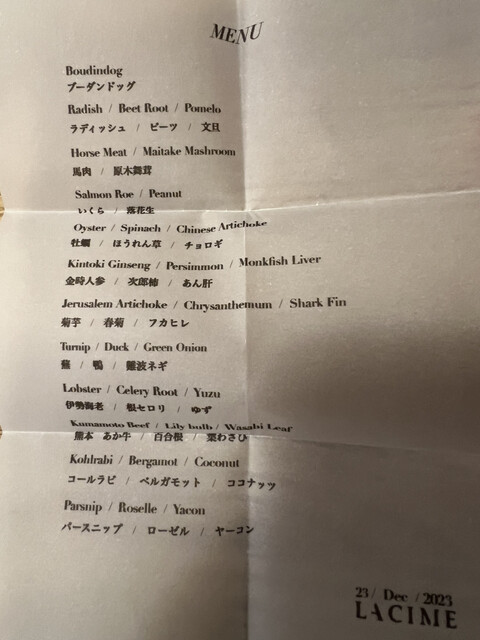 MENU
Boudindog
ブーダンドッグ
Radish / Beet Root / Pomelo
ラディッシュ / ビーツ / 文旦
Horse Meat / Maitake Mashroom
馬肉 / 原木舞茸
Salmon Roe / Peanut
いくら / 落花生
Oyster / Spinach / Chinese Artichoke
牡蠣 / ほうれん草 / チョロギ
Kintoki Ginseng / Persimmon / Monkfish Liver
金時人参 / 次郎柿 / あん肝
Jerusalem Artichoke / Chrysanthemum / Shark Fin
菊芋 / 春菊 / フカヒレ
Turnip / Duck / Green Onion
蕪 / 鴨 / 難波ネギ
Lobster / Celery Root / Yuzu
伊勢海老 / 根セロリ / ゆず
Kumamoto Beef / Lily bulb / Wasabi Leaf
熊本 あか牛 / 百合根 / 葉わさび
Kohlrabi / Bergamot / Coconut
コールラビ / ベルガモット / ココナッツ
Parsnip / Roselle / Yacon
パースニップ / ローゼル / ヤーコン
23 / Dec / 2023
LACIME